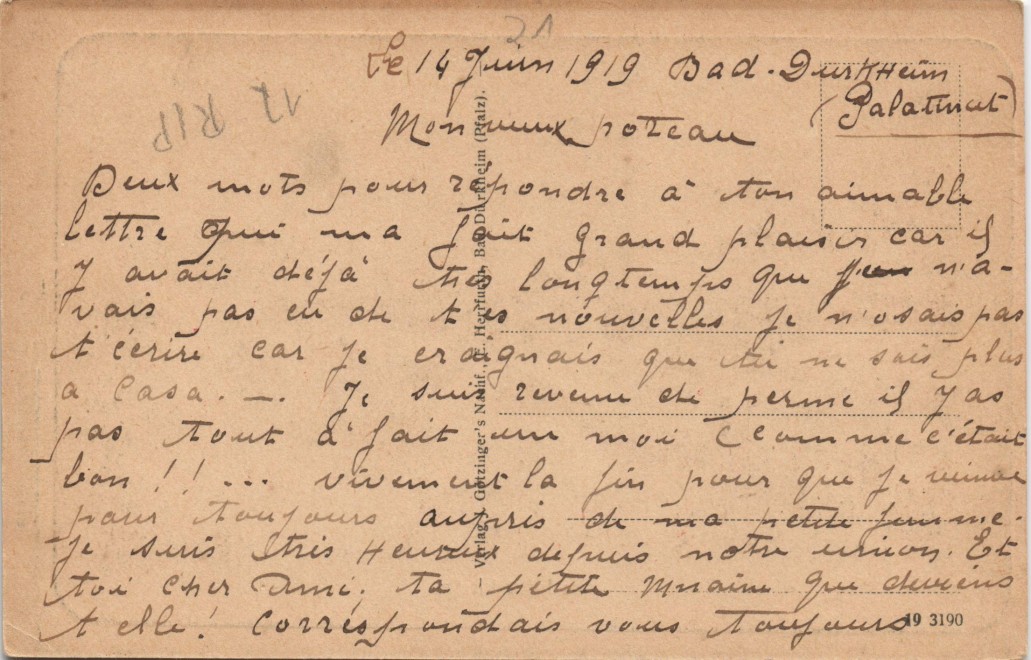 21
Le 14 Juin 1919 Bad-Durkheim
(Palatinat)
12 RIP
Mon vieux poteau
Deux mots pour répondre à ton aimable
lettre qui ma fait grand plaisir car il
y avait déjà très longtemps que je n'a-
vais pas eu de tes nouvelles je n'osais pas
t'écrire car je craignais que tu ne sois plus
a Casa. —. Je suis revenu de perme il y as
pas tout à fait un moi Comme c'était
bon!! ... vivement la fin pour que je
pour toujours auprès de ma petite femme.
Je suis très Heureux depuis notre union. Et
toi cher Ami. ta petite que deviens
t elle! correspondais vous toujours
Verlag J. Götzinger's Nachf., Herffurth, Bad Dürkheim (Pfalz).
19 3190